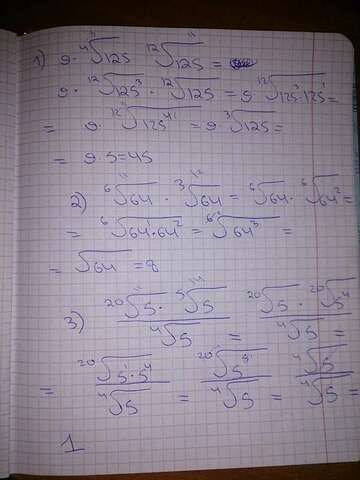 1) 9·⁴√125 ¹²√125 =
9·¹²√125³ · ¹²√125 = 9·¹²√125³·125¹ =
= 9·¹²√125⁴ = 9 ³√125 =
= 9·5=45
2) ⁶√64 · ³√64 = ⁶√64 · ⁶√64² =
= ⁶√64¹·64² = ⁶√64³ =
= √64 = 8
3) (²⁰√5 · ⁵√5)/⁴√5 = (²⁰√5 · ²⁰√5⁴)/⁴√5 =
= ²⁰√5¹·5⁴/⁴√5 = ²⁰√5⁵/⁴√5 = ⁴√5/⁴√5 =
1